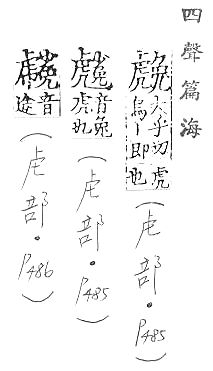 四聲篇海
大乎切虎
烏丨即也
(虍部·P485)
音兔
虎也
(虍部·P485)
音
途
(虍部·P486)